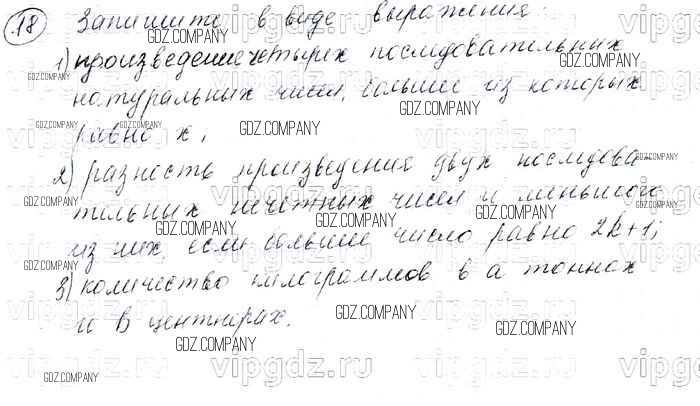 18 Запишите в виде выражения:
1) произведение четырех последовательных
натуральных чисел, большее из которых
равно х;
2) разность произведения двух последова
тельных нечетных чисел и меньшего
из них, если большее число равно 2k+1;
3) количество килограммов в а тоннах
и в центнерах.